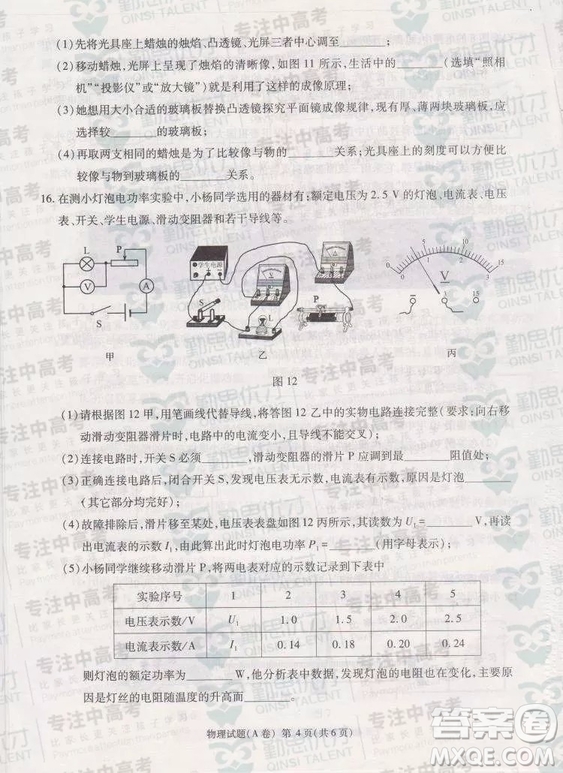 (1)先将光具座上蜡烛的烛焰、凸透镜、光屏三者中心调至______;
(2)移动蜡烛,光屏上呈现了烛焰的清晰像,如图11所示,生活中的______(选填“照相
机”“投影仪”或“放大镜”)就是利用了这样的成像原理;
(3)她想用大小合适的玻璃板替换凸透镜探究平面镜成像规律,现有厚、薄两块玻璃板,应
选择较______的玻璃板;
(4)再取两支相同的蜡烛是为了比较像与物的______关系;光具座上的刻度可以方便比
较像与物到玻璃板的______关系。
16.在测小灯泡电功率实验中,小杨同学选用的器材有:额定电压为2.5 V的灯泡、电流表、电压
表、开关、学生电源、滑动变阻器和若干导线等。
L P V A S
甲
学生电源 S L P
乙
0 5 10 15
0 1 2 3
V
- 3 15
丙
图12
(1)请根据图12甲,用笔画线代替导线,将答图12乙中的实物电路连接完整(要求:向右移
动滑动变阻器滑片时,电路中的电流变小,且导线不能交叉)。
(2)连接电路时,开关S必须______,滑动变阻器的滑片P应滑到最______阻值处;
(3)正确连接电路后,闭合开关S,发现电压表无示数,电流表有示数,原因是灯泡______
(其它部分均完好);
(4)故障排除后,滑片移至某处,电压表表盘如图12丙所示,其读数为U₁=______V,再读
出电流表的示数I₁,由此算出此时灯泡电功率P₁=______(用字母表示);
(5)小杨同学继续移动滑片P,将两电表对应的示数记录到下表中
实验序号 1 2 3 4 5
电压表示数/V U₁ 1.0 1.5 2.0 2.5
电流表示数/A I₁ 0.14 0.18 0.20 0.24
则灯泡的额定功率为______W,他分析表中数据,发现灯泡的电阻也在变化,主要原
因是灯丝的电阻随温度的升高而______。
物理试题(A卷) 第4页(共6页)
专注中高考
勤思优才
QINSI TALENT
答案圈
MXQE.COM